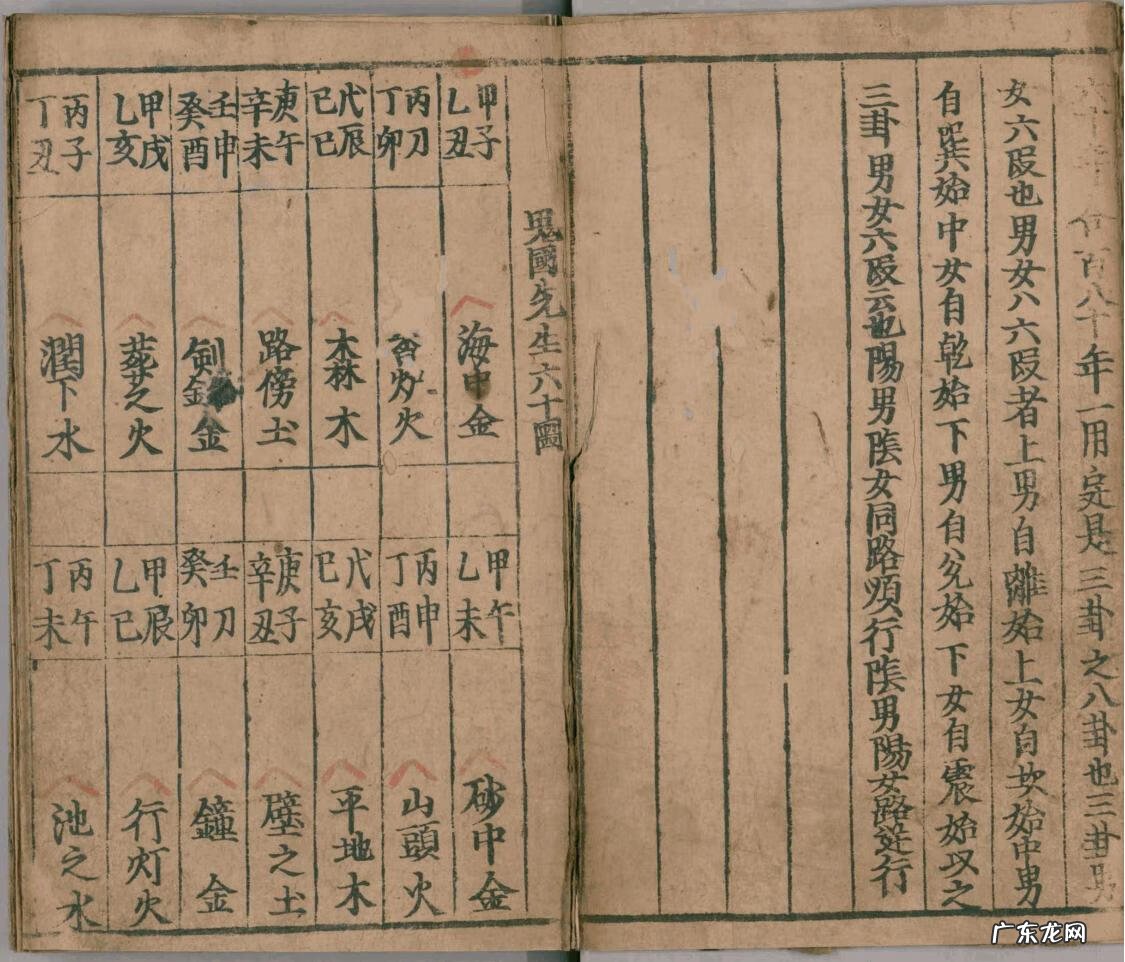 百八十年一用㝎是三卦之八卦也三卦男
女六段也男女八六段者上男自離始上女自坎始中男
自巽始中女自乾始下男自兊始下女自震始以之
三卦男女六段云也陽男陰女同路順行陰男陽女路逆行
鬼國先生六十圖
甲子 乙丑 海中金
丙刀 丁卯 火
戊辰 己巳 大林木
庚午 辛未 路傍土
壬申 癸酉 剣金
甲戌 乙亥 葬之火
丙子 丁丑 潤下水
甲午 乙未 砂中金
丙申 丁酉 山頭火
戊戌 己亥 平地木
庚子 辛丑 壁之土
壬刀 癸卯 鐘金
甲辰 乙巳 行灯火
丙午 丁未 池之水
广东龙网